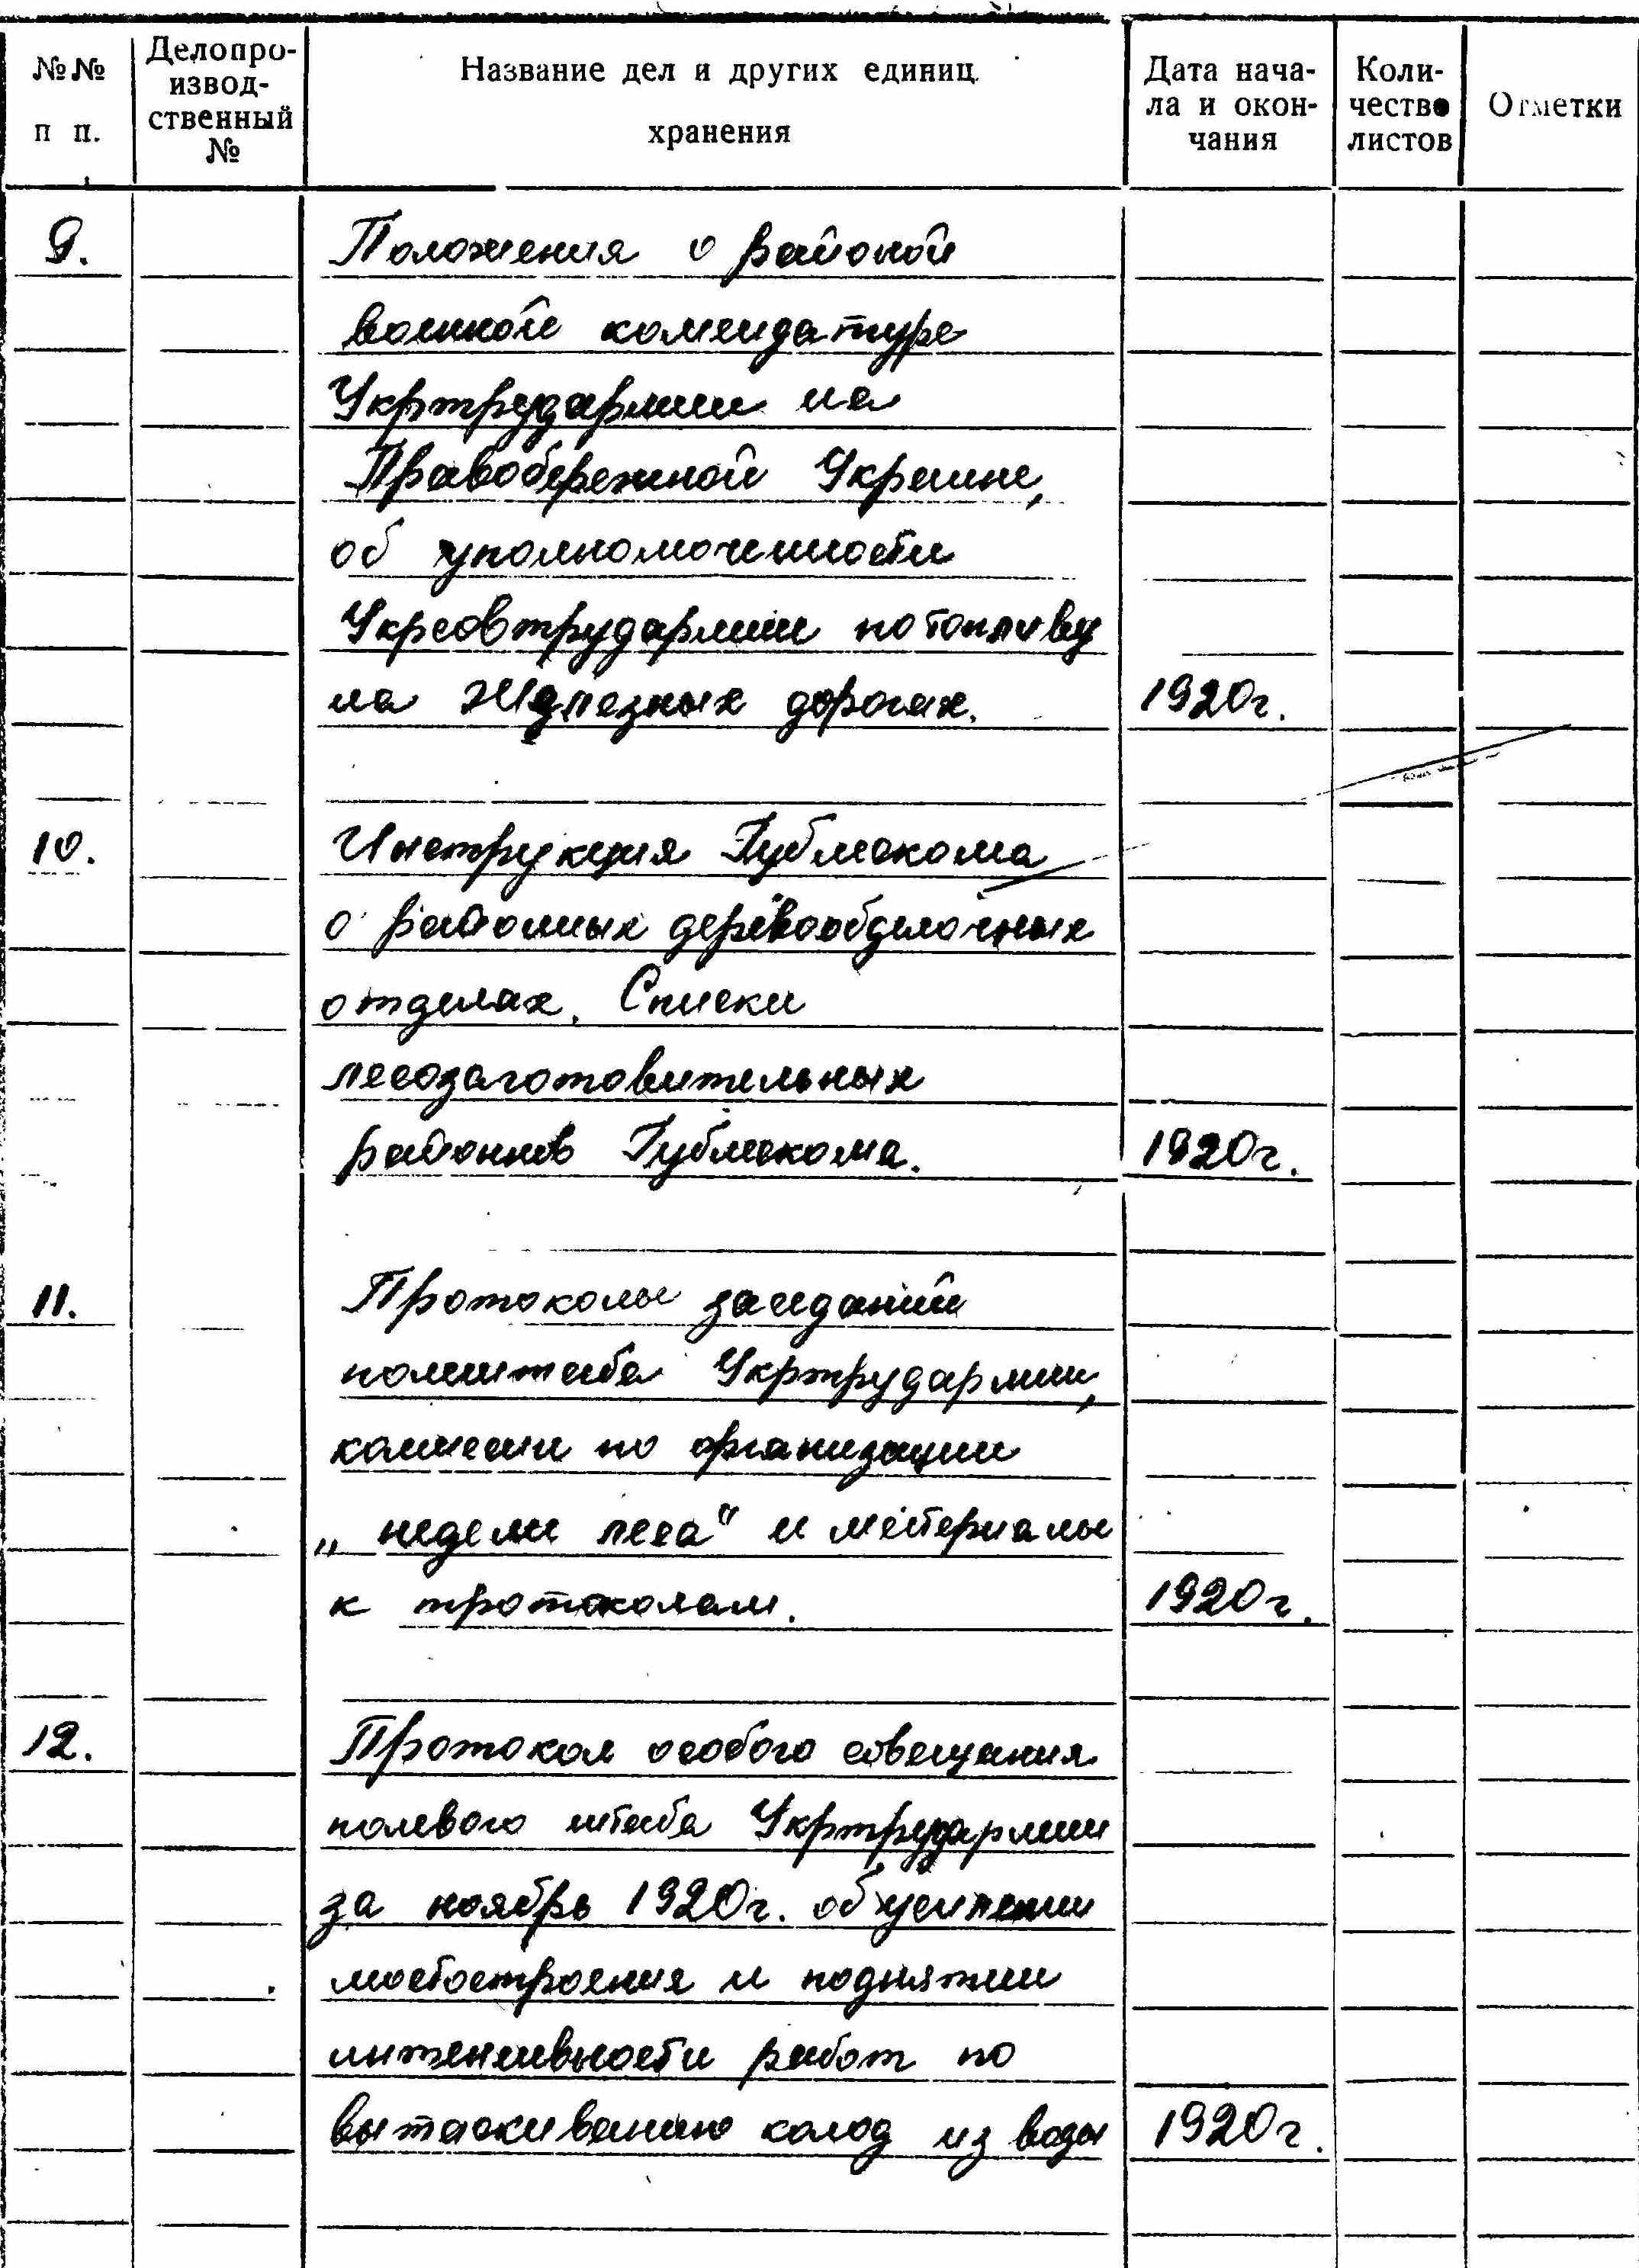 №№ п п.
Делопро-
извод-
ственный
№
Название дел и других единиц
хранения
Дата нача-
ла и окон-
чания
Коли-
чество
листов
Отметки
9. Положения о районой
военной комендатуре
Укртрудармии на
Правобережной Украине,
об уполномоченности
Укрсовтрудармии по топливу
на железных дорогах. 1920г.
10. Инструкция Губмекома
о районных деревообделочных
отделах. Списки
лесозаготовительных
районнов Губмекома. 1920г.
11. Протоколы заседаний
полештаба Укртрудармии,
комиссии по организации
„недели леса" и материалы
к протоколам. 1920г.
12. Протокол особого совещания
полевого штаба Укртрудармии
за ноябрь 1920г. об усилении
мостостроения и поднятии
интенсивности работ по
вытаскиванию колод из воды 1920г.